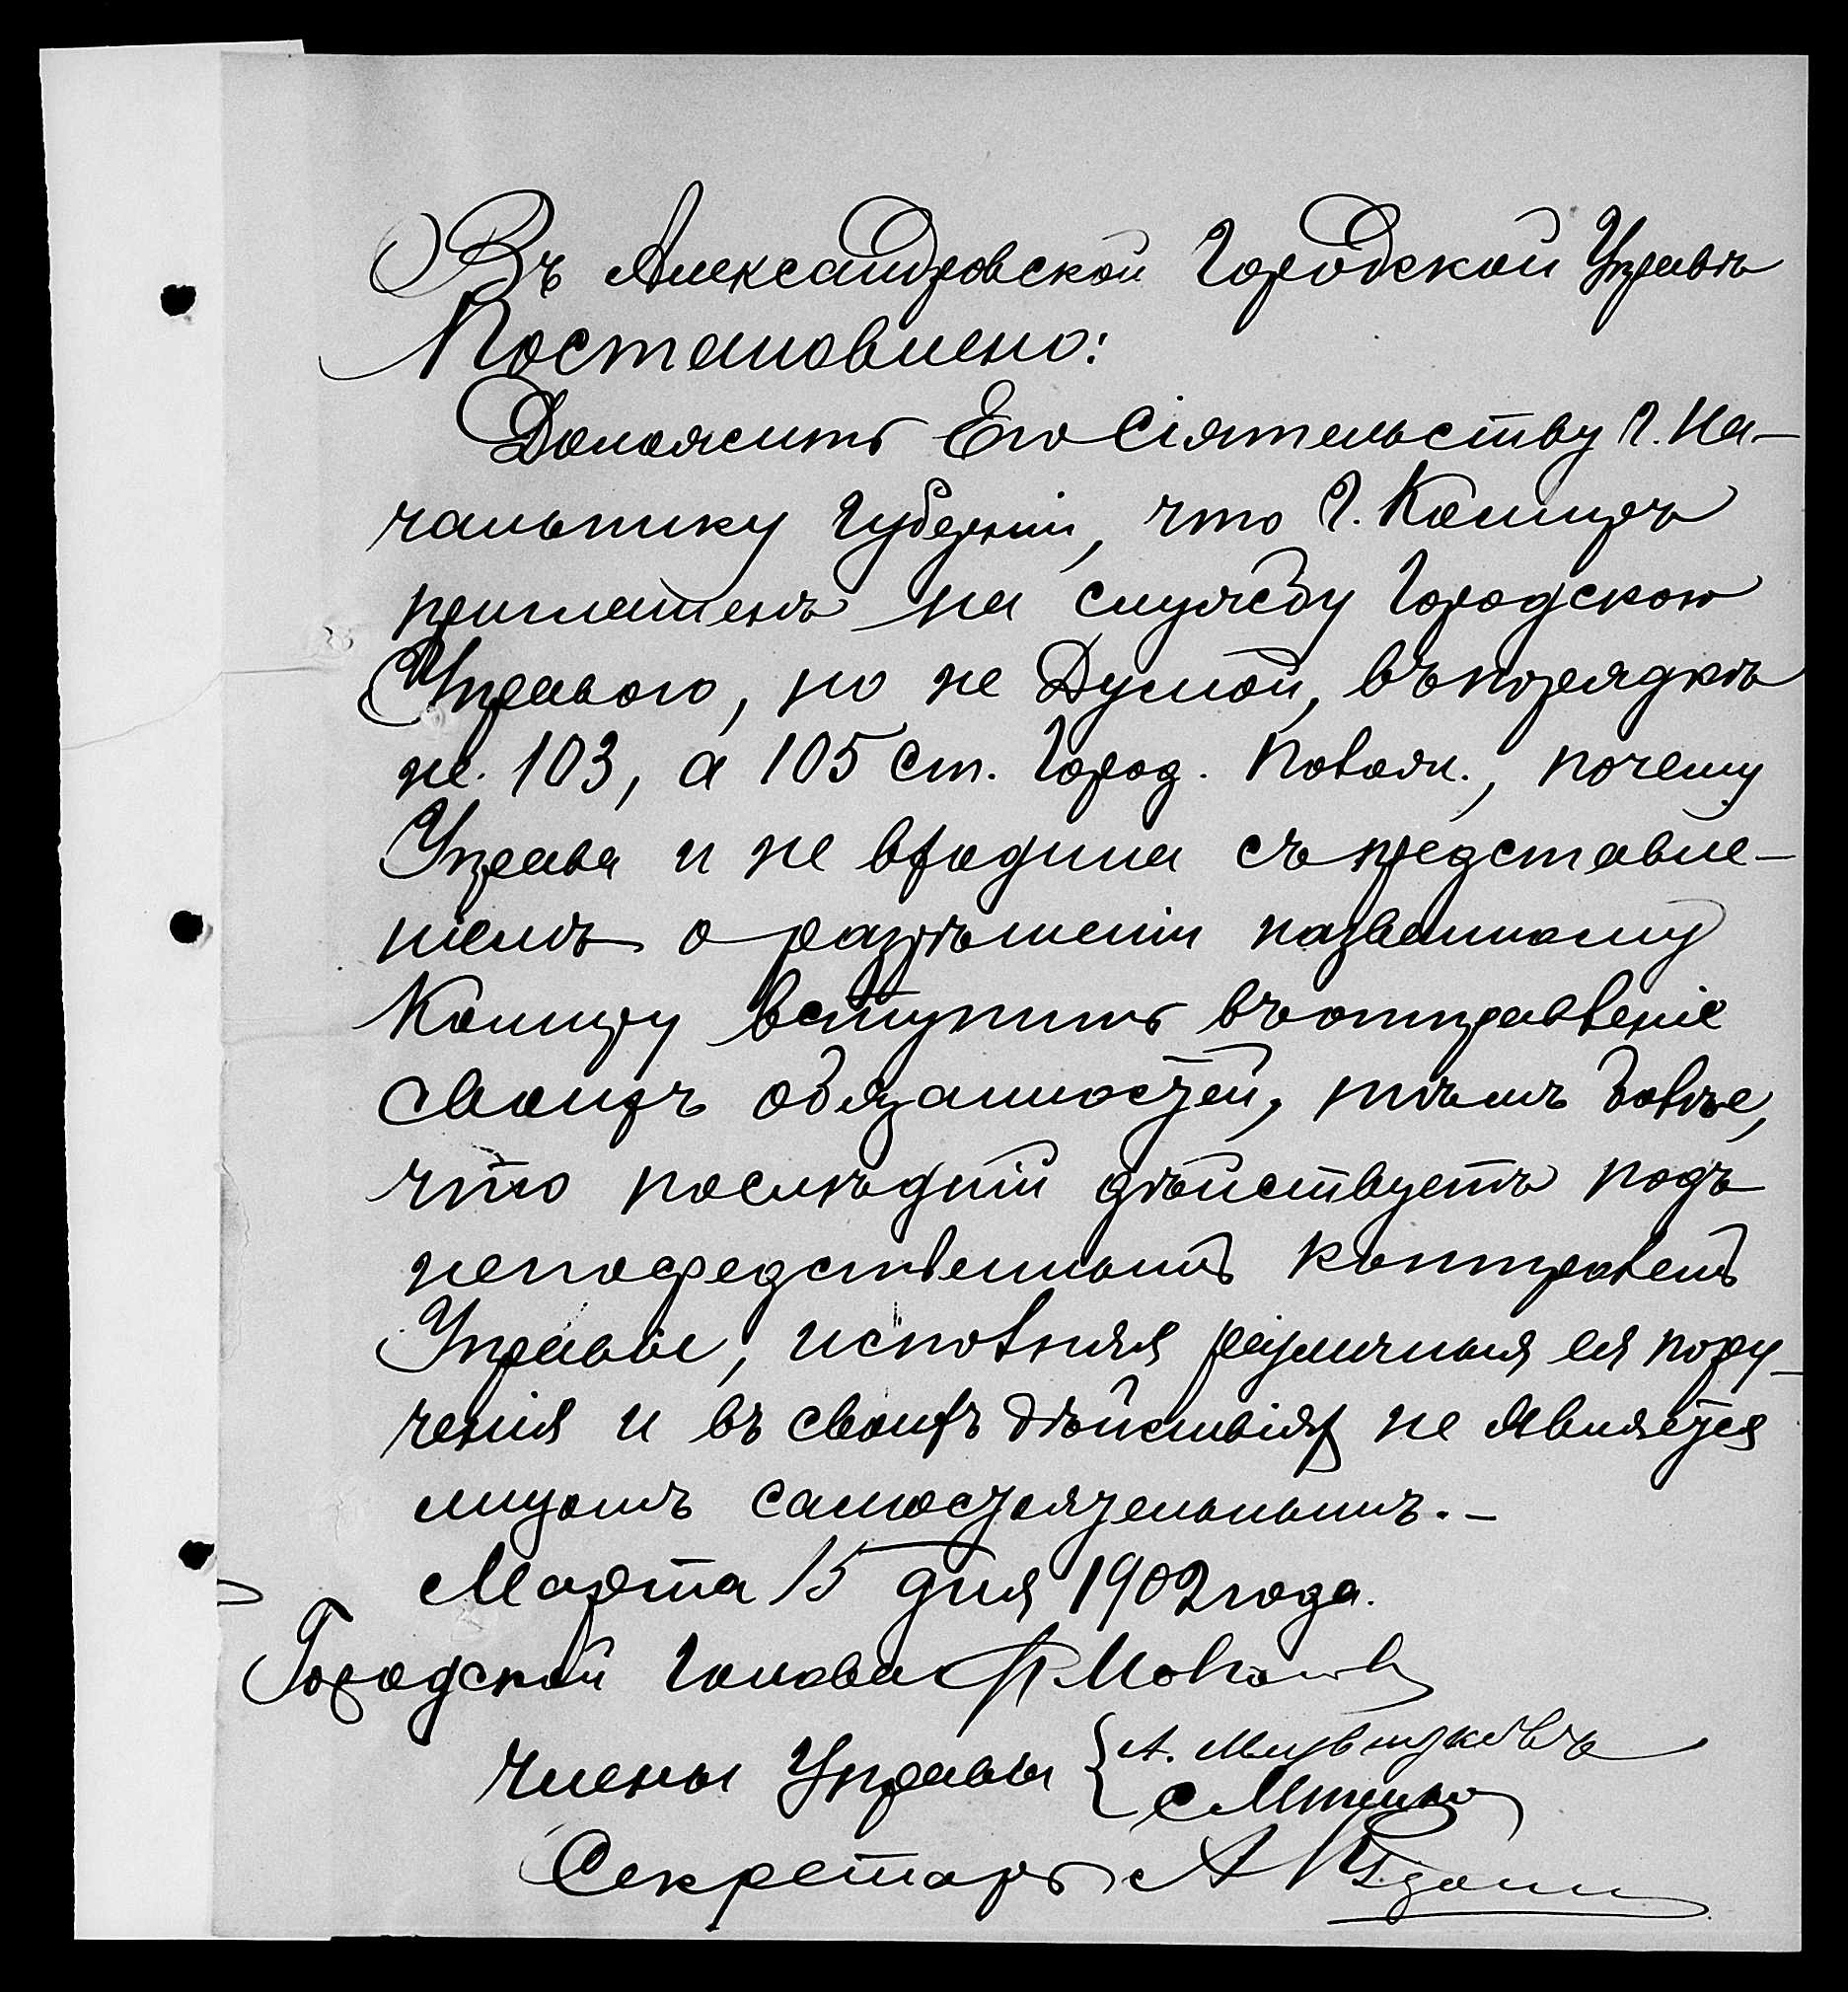 Въ Александровской Городской Управѣ
Постановлено:
Доложить Его Сіятельству Г. На-
чальнику Губерніи, что Г. Коницъ
приглашенъ на службу Городскою
Управою, но не Думой, въ порядкѣ
не 103, а 105 ст. Город. Полож., почему
Управа и не входила съ представле-
ніемъ о разрѣшеніи названному
вступить въ отправленіе
своихъ обязанностей, тѣмъ болѣе,
что послѣдній дѣйствуетъ подъ
непосредственнымъ контролемъ
Управы, исполняя различныя ея пору-
ченія и въ своихъ дѣйствіях не является
лицомъ самостоятельнымъ.-
Марта 15 дня 1902 года.
Городской Голова Ф Мов
Члены Управы { А.
С
Секретарь А